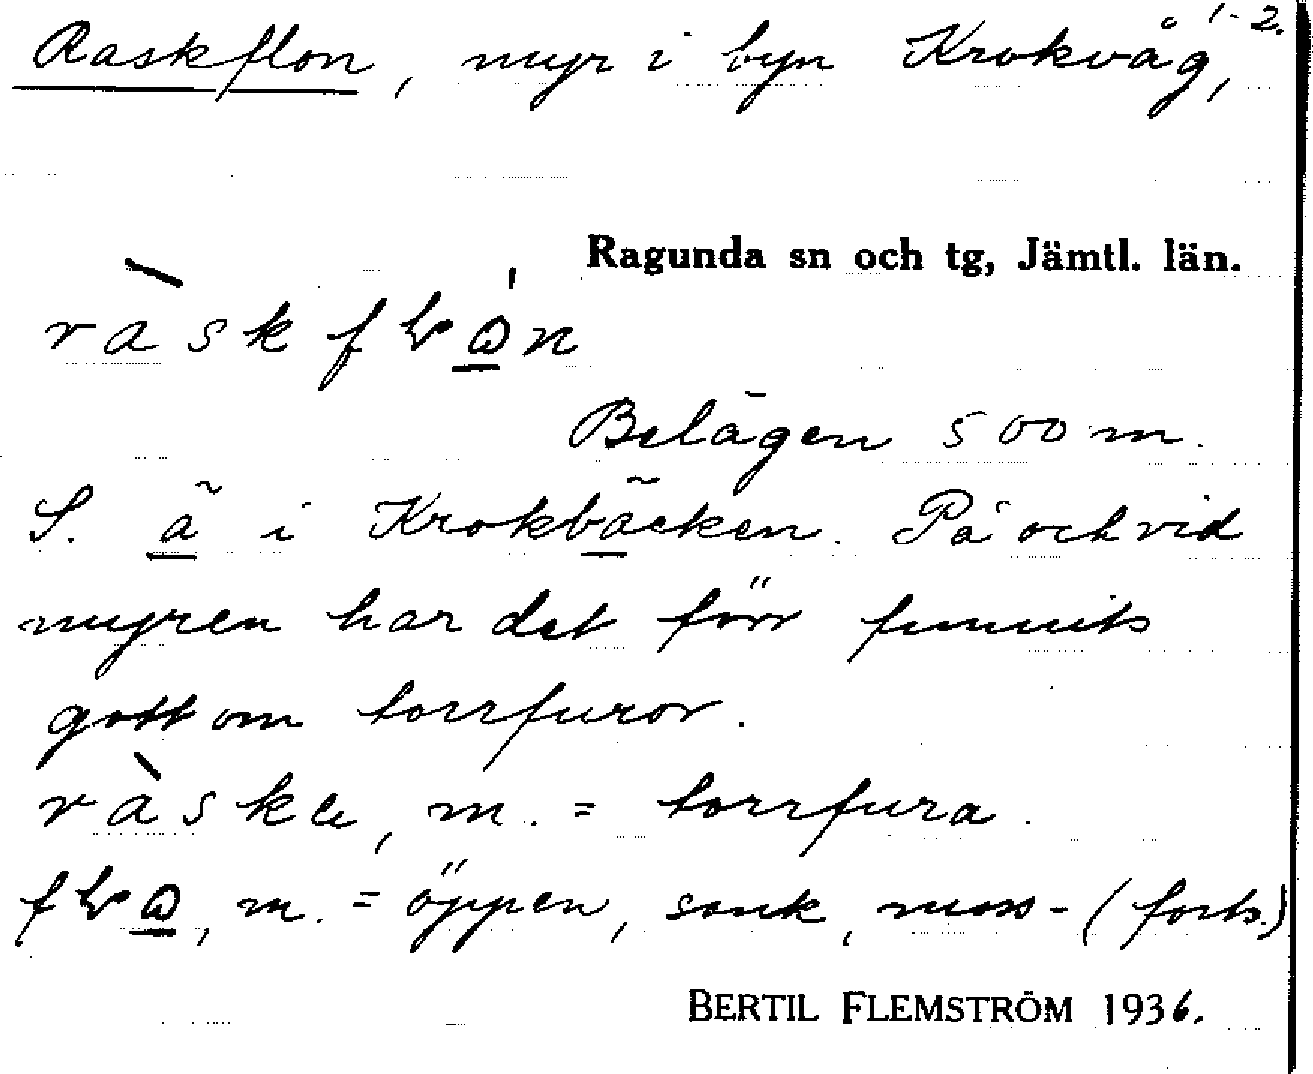 Raskflon, myr i byn Krokvåg, 1-2.
Ragunda sn och tg, Jämtl. län.
Belägen 500 m.
S. ã i Krokbäcken. På och vid
myren har det förr funnits
gott om torrfuror.
m. = torrfura.
m. = öppen, sank, moss- (forts.)
BERTIL FLEMSTRÖM 1936.